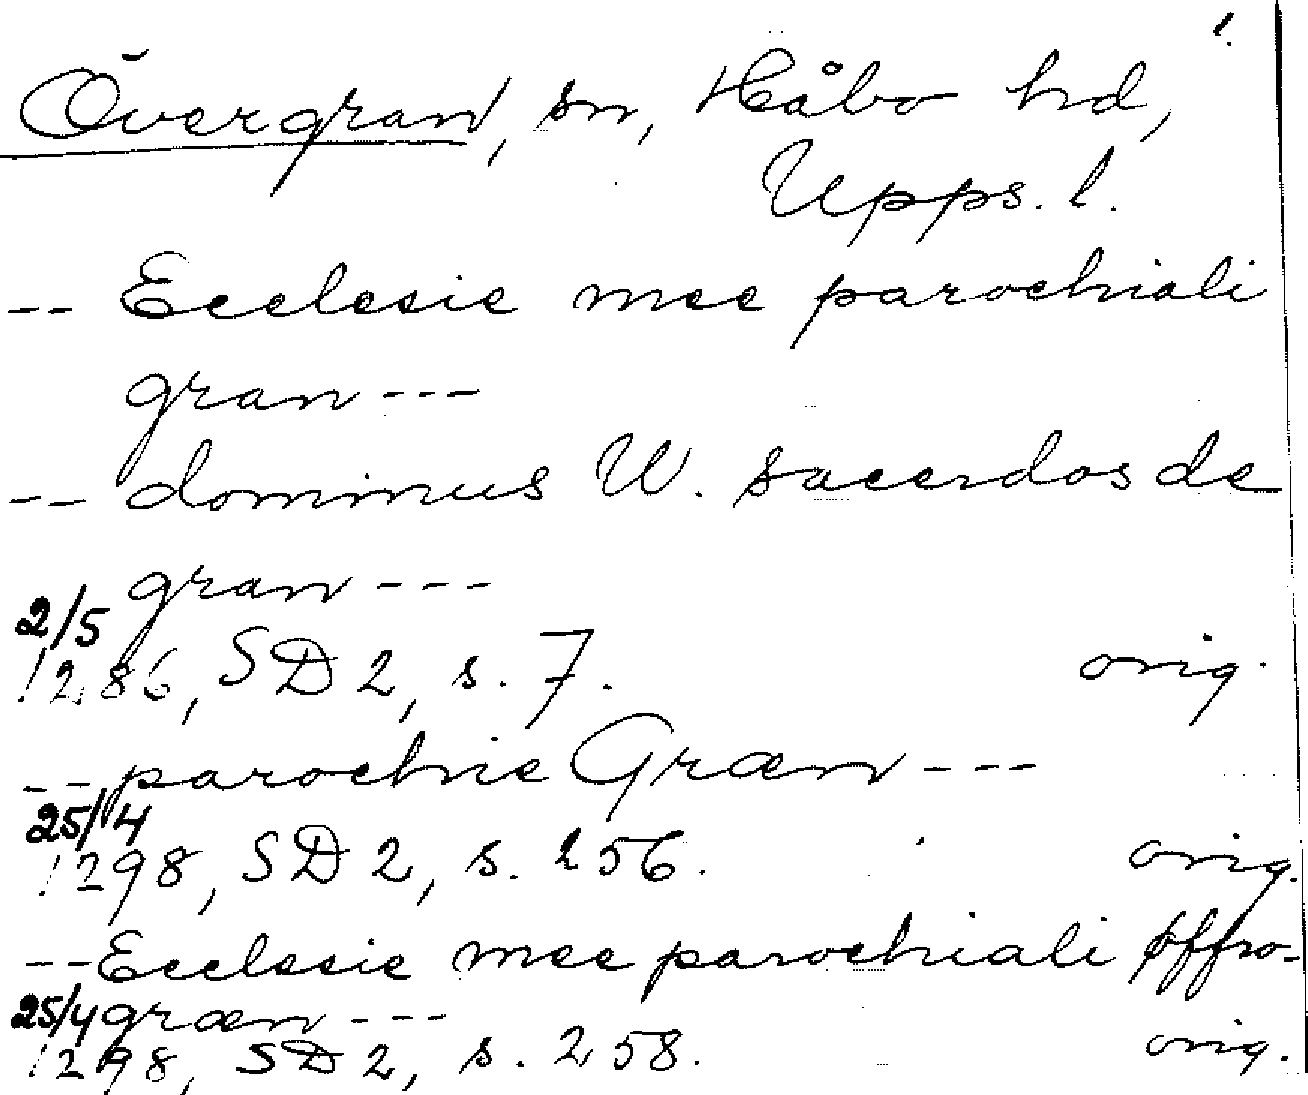 1.
Övergran, sn, Håbo hd,
Upps. l.
-- Ecclesie mee parochiali
gran ---
-- dominus W. sacerdos de
gran ---
2/5
1286, SD 2, s. 7. orig.
-- parochie Græn ---
25/4
1298, SD 2, s. 256. orig.
-- Ecclesie mee parochiali øffro-
25/4 græn ---
1298, SD 2, s. 258. orig.